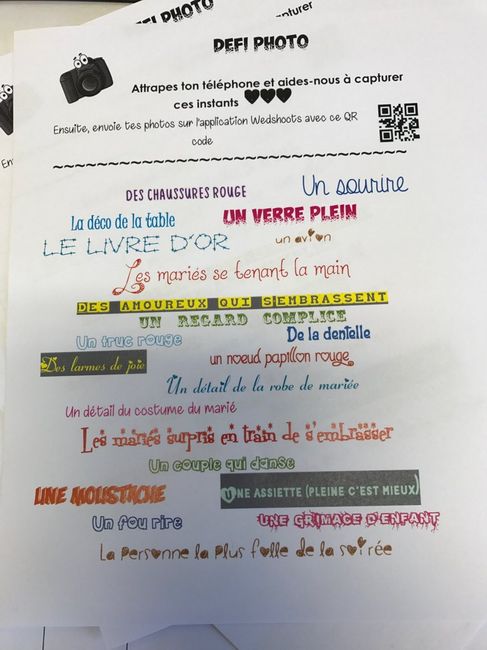 PHOTO
apturer
DEFI PHOTO
Attrapes ton téléphone et aides-nous à capturer
ces instants
Ensuite, envoie tes photos sur l'application Wedshoots avec ce QR
code
En
~~~~~~~~~~~~~~~~~~~~~~~~~~~~~~~~~~~~
DES CHAUSSURES ROUGE Un sourire
La déco de la table UN VERRE PLEIN
LE LIVRE D'OR un avion
Les mariés se tenant la main
DES AMOUREUX QUI S'EMBRASSENT
UN REGARD COMPLICE
Un truc rouge De la dentelle
Des larmes de joie un noeud papillon rouge
Un détail de la robe de mariée
Un détail du costume du marié
Les mariés surpris en train de s'embrasser
Un couple qui danse
UNE MOUSTACHE UNE ASSIETTE (PLEINE C'EST MIEUX)
Un fou rire UNE GRIMACE D'ENFANT
La personne la plus folle de la soirée